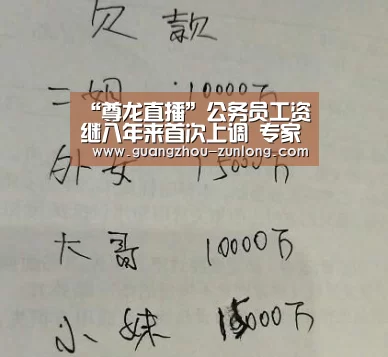 欠款
二姐 10000万
“尊龙直播”公务员工资
继八年来首次上调 专家
www.guangzhou-zunlong.com
外女 15000万
大哥 10000万
小妹 15000万